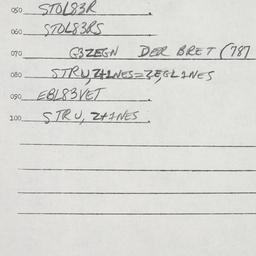 050 STOL83R.
060 STOL83RS
070 G3ZEGN DER BRET (787
080 STRU,Z+1NES=ZE,GL1NES
090 EBL83VET
100 STRU,Z+1NES.